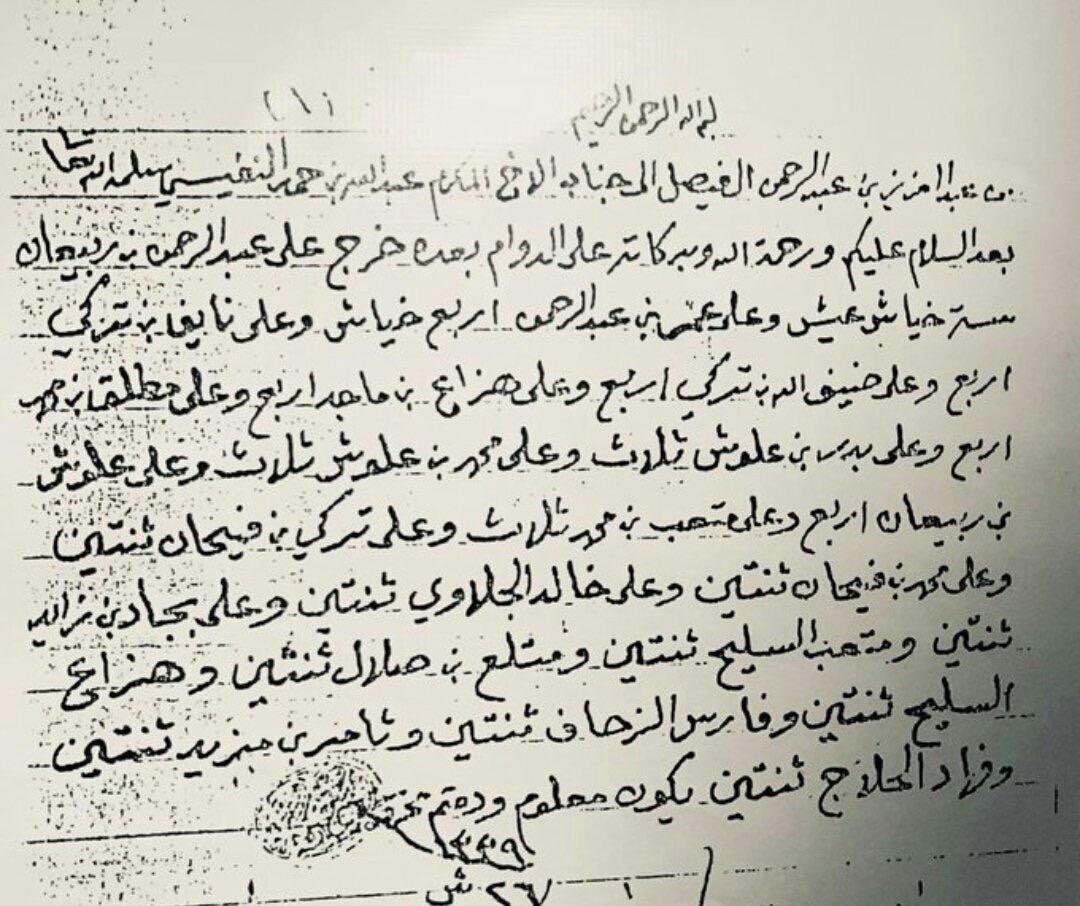 بسم الله الرحمن الرحيم
(١)
من عبدالعزيز بن عبدالرحمن الفيصل الى جناب الاخ المكرم عبدالعزيز بن حمد النفيسي سلمه الله تعا
بعد السلام عليكم ورحمة الله وبركاته على الدوام بعده خرج على عبدالرحمن بن ربيعان
ستة خياش عيش وعلى عمر بن عبدالرحمن اربع خياش وعلى نايف بن تركي
اربع وعلى ضيف الله بن تركي اربع وعلى هزاع بن ماجد اربع وعلى مطلق بن محمد
اربع وعلى بدر بن علوش ثلاث وعلى محمد بن علوش ثلاث وعلى علوش
بن ربيعان اربع وعلى متعب بن محمد ثلاث وعلى تركي بن فيحان ثنتين
وعلى محمد بن فيحان ثنتين وعلى خالد الجلاوي ثنتين وعلى بجاد بن زايد
ثنتين ومتعب السليح ثنتين ومتلع بن هلال ثنتين وهزاع
السليح ثنتين وفارس الزحاف ثنتين وثامر بن جزير ثنتين
وفهاد الحلاج ثنتين يكون معلوم ودمتم
١٣٣٩
٢٦ ش